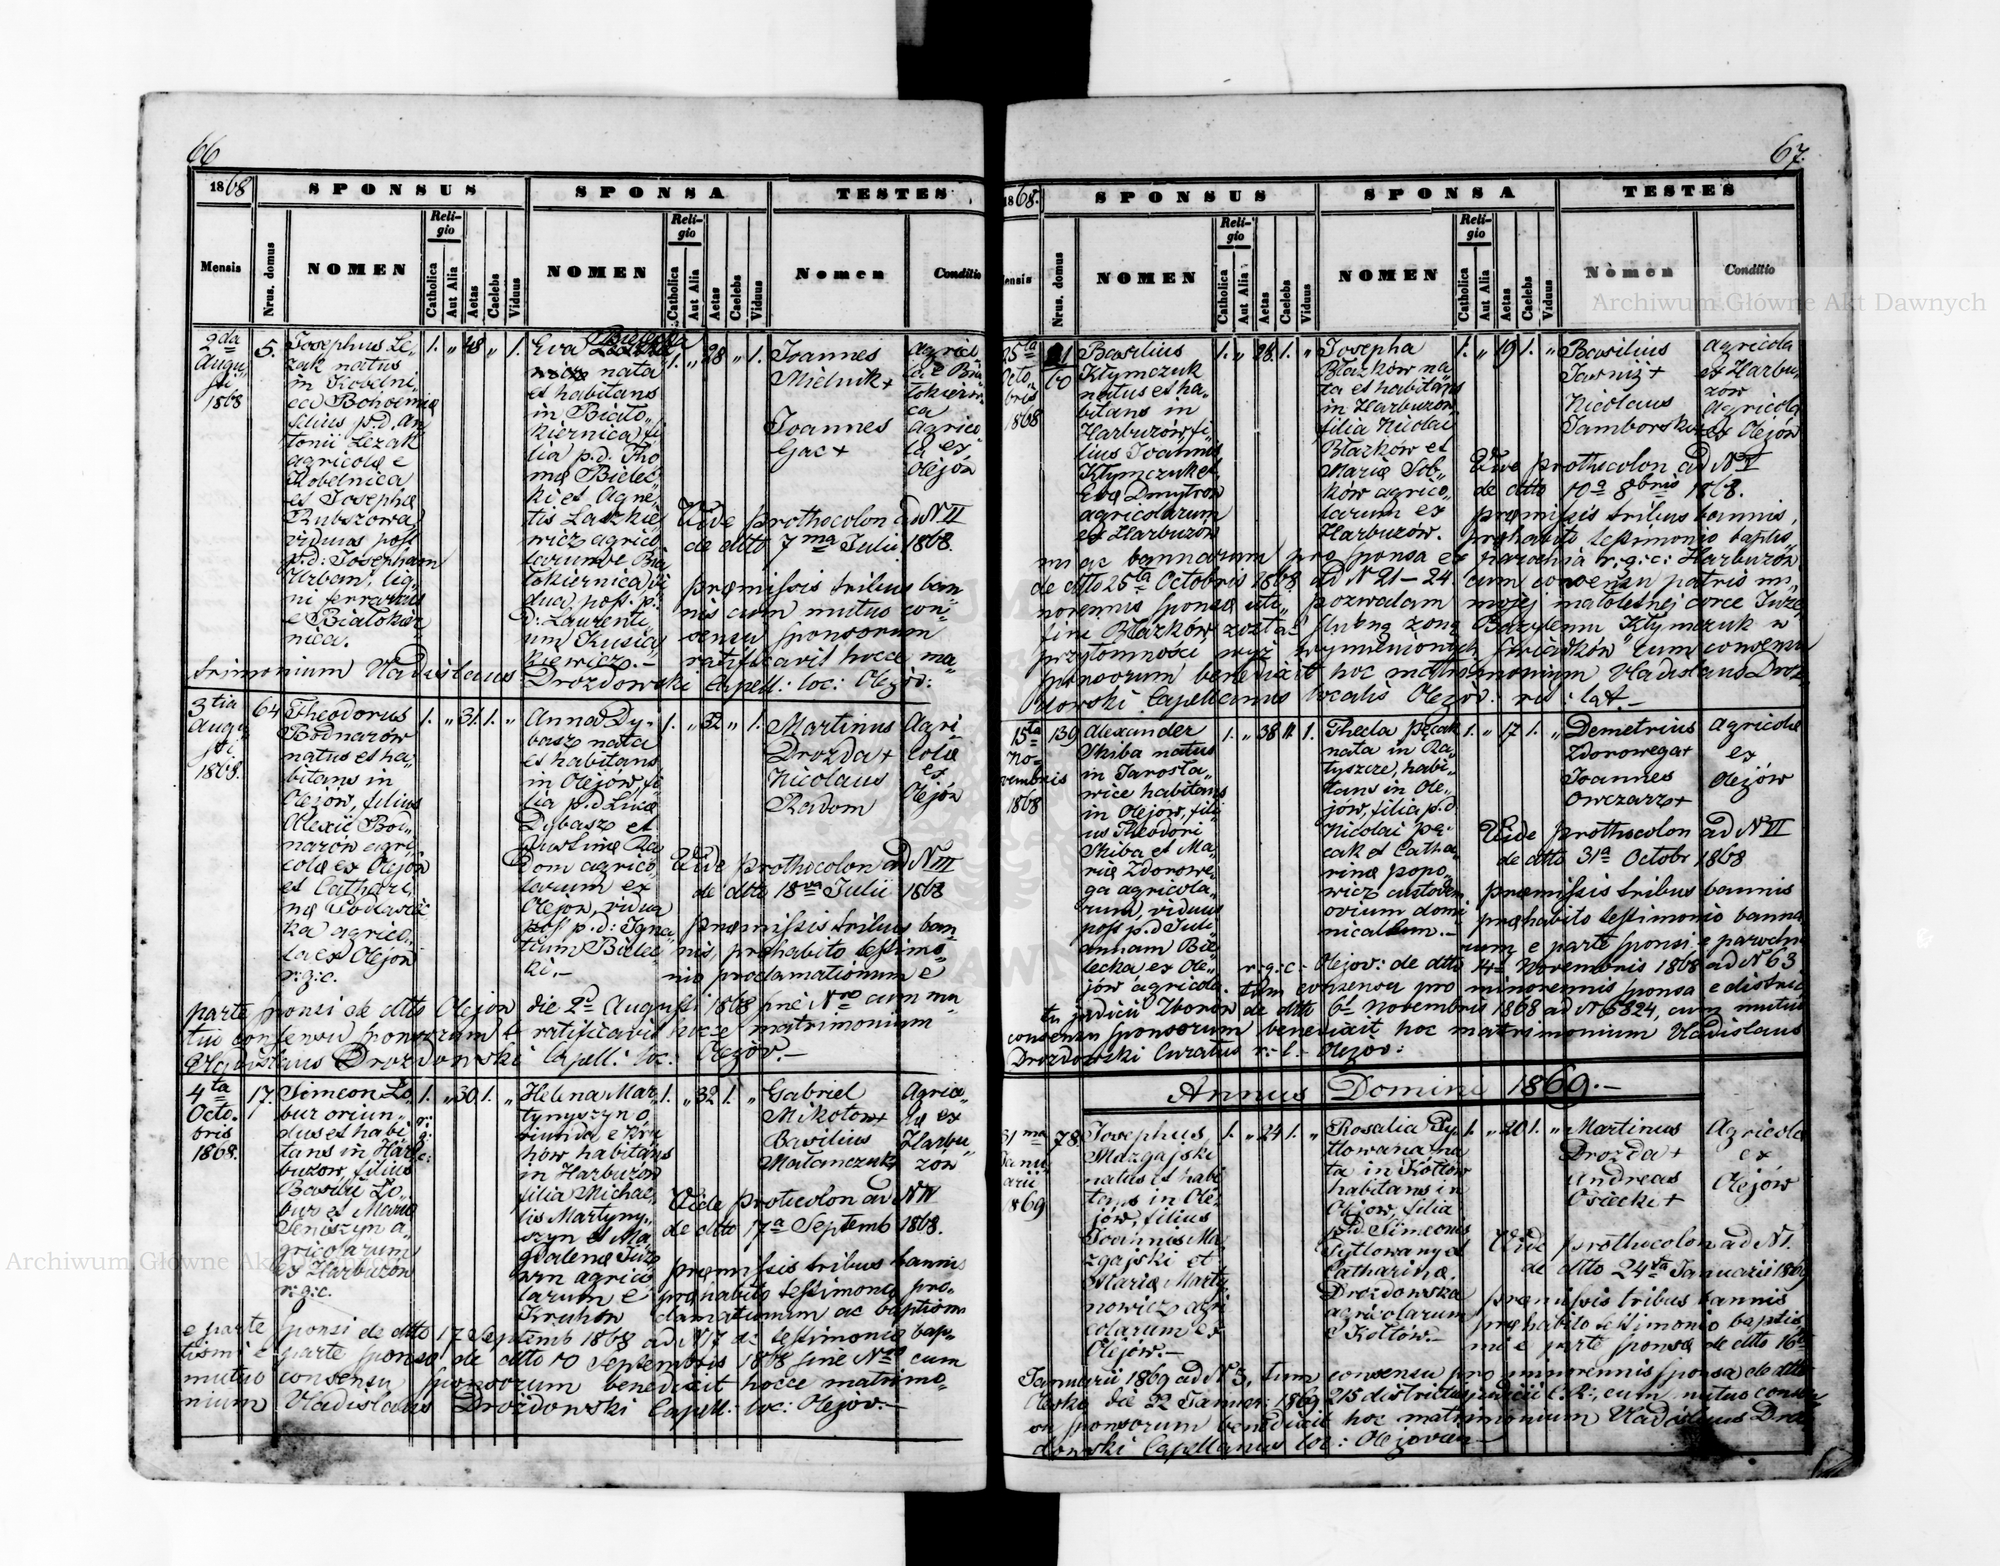 66
1868
SPONSUS
SPONSA
TESTES
Mensis
Nrus. domus
NOMEN
Religio
Catholica
Aut Alia
Aetas
Caelebs
Viduus
NOMEN
Religio
Catholica
Aut Alia
Aetas
Caelebs
Viduus
Nomen
Conditio
2da
Augu„
sti
1868
5.
Josephus Le„
zak natus
in
eca Bohoemia
filius p.d. An
tonii Lezak
agricolæ e
Kobelnica
et Josephæ
Rubszowa
viduus post
p.d: Josepham
Urban, lig„
ni ferrarius
e Bialokier
nica.
1. „ 48 „ 1.
Eva
nata
et habitans
in Biało„
kiernica fi
lia p.d. Tho
mæ Bielec„
ki et Agne„
tis Laszkie„
wicz agrico
larum e Bia
lokiernica vi
dua post. p.
d: Laurenti„
um Kusia„
kiewicz.—
1. „ 28 „ 1.
Joannes
Mielnik+
Joannes
Gac+
agricola e Bia
lokierni„
ca
agrico
la ex
Olejów
Vide prothocolon ad N II
de dtto 7ma Julii 1868.
præmissis tribus ban„
nis cum mutuo con„
sensu sponsorum
ratificavit hocce ma„
trimonium Vladislaus Drozdowski Capell: loc: Olejov:
3tia
Augu„
sti
1868.
64
Theodorus
Bodnarów
natus et ha„
bitans in
Olejów, filius
Alexii Bod„
narów agri„
colæ ex Olejów
et Cathari„
næ
ka agrico„
la ex Olejów
r.g.c.
1. „ 31. 1. „
Anna Dy„
basz nata
et habitans
in Olejów, fi
lia p.d. Lucæ
Dybasz et
Paulinæ Ra
dom agrico„
larum ex
Olejów, vidua
post p.d: Igna„
tium Bielec„
ki.—
1. „ 32 „ 1.
Martinus
Drozda+
Nicolaus
Radom
Agri„
colæ
ex
Olejów
Vide prothocolon ad N III
de dtto 18va Julii 1868
præmissis tribus ban„
nis, præhabito testimo„
nio proclamationum e
parte sponsi de dtto Olejów die 2a Augusti 1868 sine Nro cum mu„
tuo consensu sponsorum ratificavit hocce matrimonium
Vladislaus Drozdowski Capell: loc: Olejov.—
4ta
Octo„
bris
1868.
17.
Simeon Lo„
bur oriun„
dus et habi„
tans in Har„
buzow, filius
Basilii Lo„
bur et Mariæ
Seniszyn a„
gricolarum
ex Harbuzów
r:g:c.
1.
r:
g:
c:
„ 30 1. „
Helena Mar„
tynyszyn o„
riunda e Kru
hów habitans
in Harbuzów
filia Michae„
lis Martyny„
szyn et Ma„
gdalenæ
agrico
larum e
Kruhów
1. „ 32 1. „
Gabriel
Mikołow+
Basilius
Małanczuk+
Agrico„
læ ex
Harbu„
zów
Vide protocolon ad N IV
de dtto 17a Septemb 1868.
præmissis tribus bannis
præhabito testimonio pro„
clamationum ac baptism
e parte sponsi de dtto 17 Septemb 1868 ad N 17 testimonio bap„
tismi e parte sponsæ de dtto 10 Septembris 1868 sine Nro cum
mutuo consensu sponsorum benedixit hocce matrimo„
nium Vladislaus Drozdowski Capell: loc: Olejov.—
67.
1868.
SPONSUS
SPONSA
TESTES
Mensis
Nrus. domus
NOMEN
Religio
Catholica
Aut Alia
Aetas
Caelebs
Viduus
NOMEN
Religio
Catholica
Aut Alia
Aetas
Caelebs
Viduus
Nomen
Conditio
25ta
Octo„
bris
1868
60
Basilius
Kłymczuk
natus et ha„
bitans in
Harbuzów, fi„
lius Joannis
Kłymczuk et
Evæ Dmytrów
agricolarum
ex Harbuzów
1. „ 28. 1. „
Josepha
Błazków na„
ta et habitans
in Harbuzow
filia Nicolai
Błazków et
Mariæ Sob„
ków agrico„
larum ex
Harbuzów.
1. „ 19 1. „
Basilius
Jarnisz+
Nicolaus
Tamborski+
agricola
ex Harbu„
zów
agricola
ex Olejów
Vide prothocolon ad N V
de dtto 10a 8bris 1868.
præmissis tribus bannis,
præhabito testimonio baptis„
mi ac bannorum pro sponsa ex parochia r:g:c: Harbuzów
de dtto 25ta Octobris 1868 ad N 21–24 cum consensu patris mi„
norennis sponsæ uti„ pozwalam mojej małoletnej corce Juze„
fine Błazków zostać slubną zoną Bazylemu Kłymczuk w
przytomności wyż wymienionych swiadków cum consensu
sponsorum benedixit hoc matrimonium Vladislaus Droz„
dowski Capellanus localis Olejov: rit: lat.—
15ta
No„
vembris
1868
139
Alexander
Skiba natus
in Jarosla„
wice habitans
in Olejów, fili
us Theodori
Skiba et Ma„
riæ Zdorowe„
ga agricola„
rum, viduus
post p.d. Juli
annam Bie„
lecka ex Ole„
jów agricola.
1. „ 38 „ 1.
Thecla Pęcak
nata in Ra„
tyszcze, habi„
tans in Ole„
jów, filia p.d.
Nicolai Pę„
cak et Catha„
rinæ Popo„
wicz custodum
ovium domi
nicalium.—
1. „ 17 1. „
Demetrius
Zdorowega+
Joannes
Owczarz+
Agricolæ
ex
Olejów
Vide prothocolon ad N VI
de dtto 31a Octobr 1868
præmissis tribus bannis
præhabito testimonio banno
rum e parte sponsi e parochi
r.g.c.— Olejov: de dtto 14 Novembris 1868 ad N 63
tum consensu pro minorennis sponsa e distric
tu judicii Zborów de dtto 6t Novembris 1868 ad N 6824, cum mutuo
consensu sponsorum benedixit hoc matrimonium Vladislaus
Drozdowski Curatus r: l.— Olejov:
Annus Domini 1869.—
31ma
Janu„
arii
1869
78
Josephus
Mazgajski
natus et habi
tans in Ole„
jów, filius
Joannis Ma„
zgajski et
Mariæ Marty„
nowicz agri
colarum ex
Olejów.—
1. „ 24 1. „
Rosalia Sy
tlowana na„
ta in Kółtów
habitans in
Olejow, filia
p.d. Simeonis
Sytlowany et
Catharinæ
Drozdowska
agricolarum
e Kołtów.—
1. „ 20 1. „
Martinus
Drozda+
Andreas
Osiecki+
Agricolæ
ex
Olejów
Vide prothocolon ad N I.
de dtto 24ta Januarii 1869
præmissis tribus bannis
præhabito testimonio baptis„
mi e parte sponsæ de dtto 16ta
Januarii 1869 ad N 3, tum consensu pro minorennis sponsa de dtto
Olesko die 22 Januar: 1869 215 districtus judicii C.R:, cum mutuo consen„
su sponsorum benedixit hoc matrimonium Vladislaus Droz
dowski Capellanus loc: Olejovien—
Archiwum Główne Akt Dawnych
Archiwum Główne Akt Dawnych